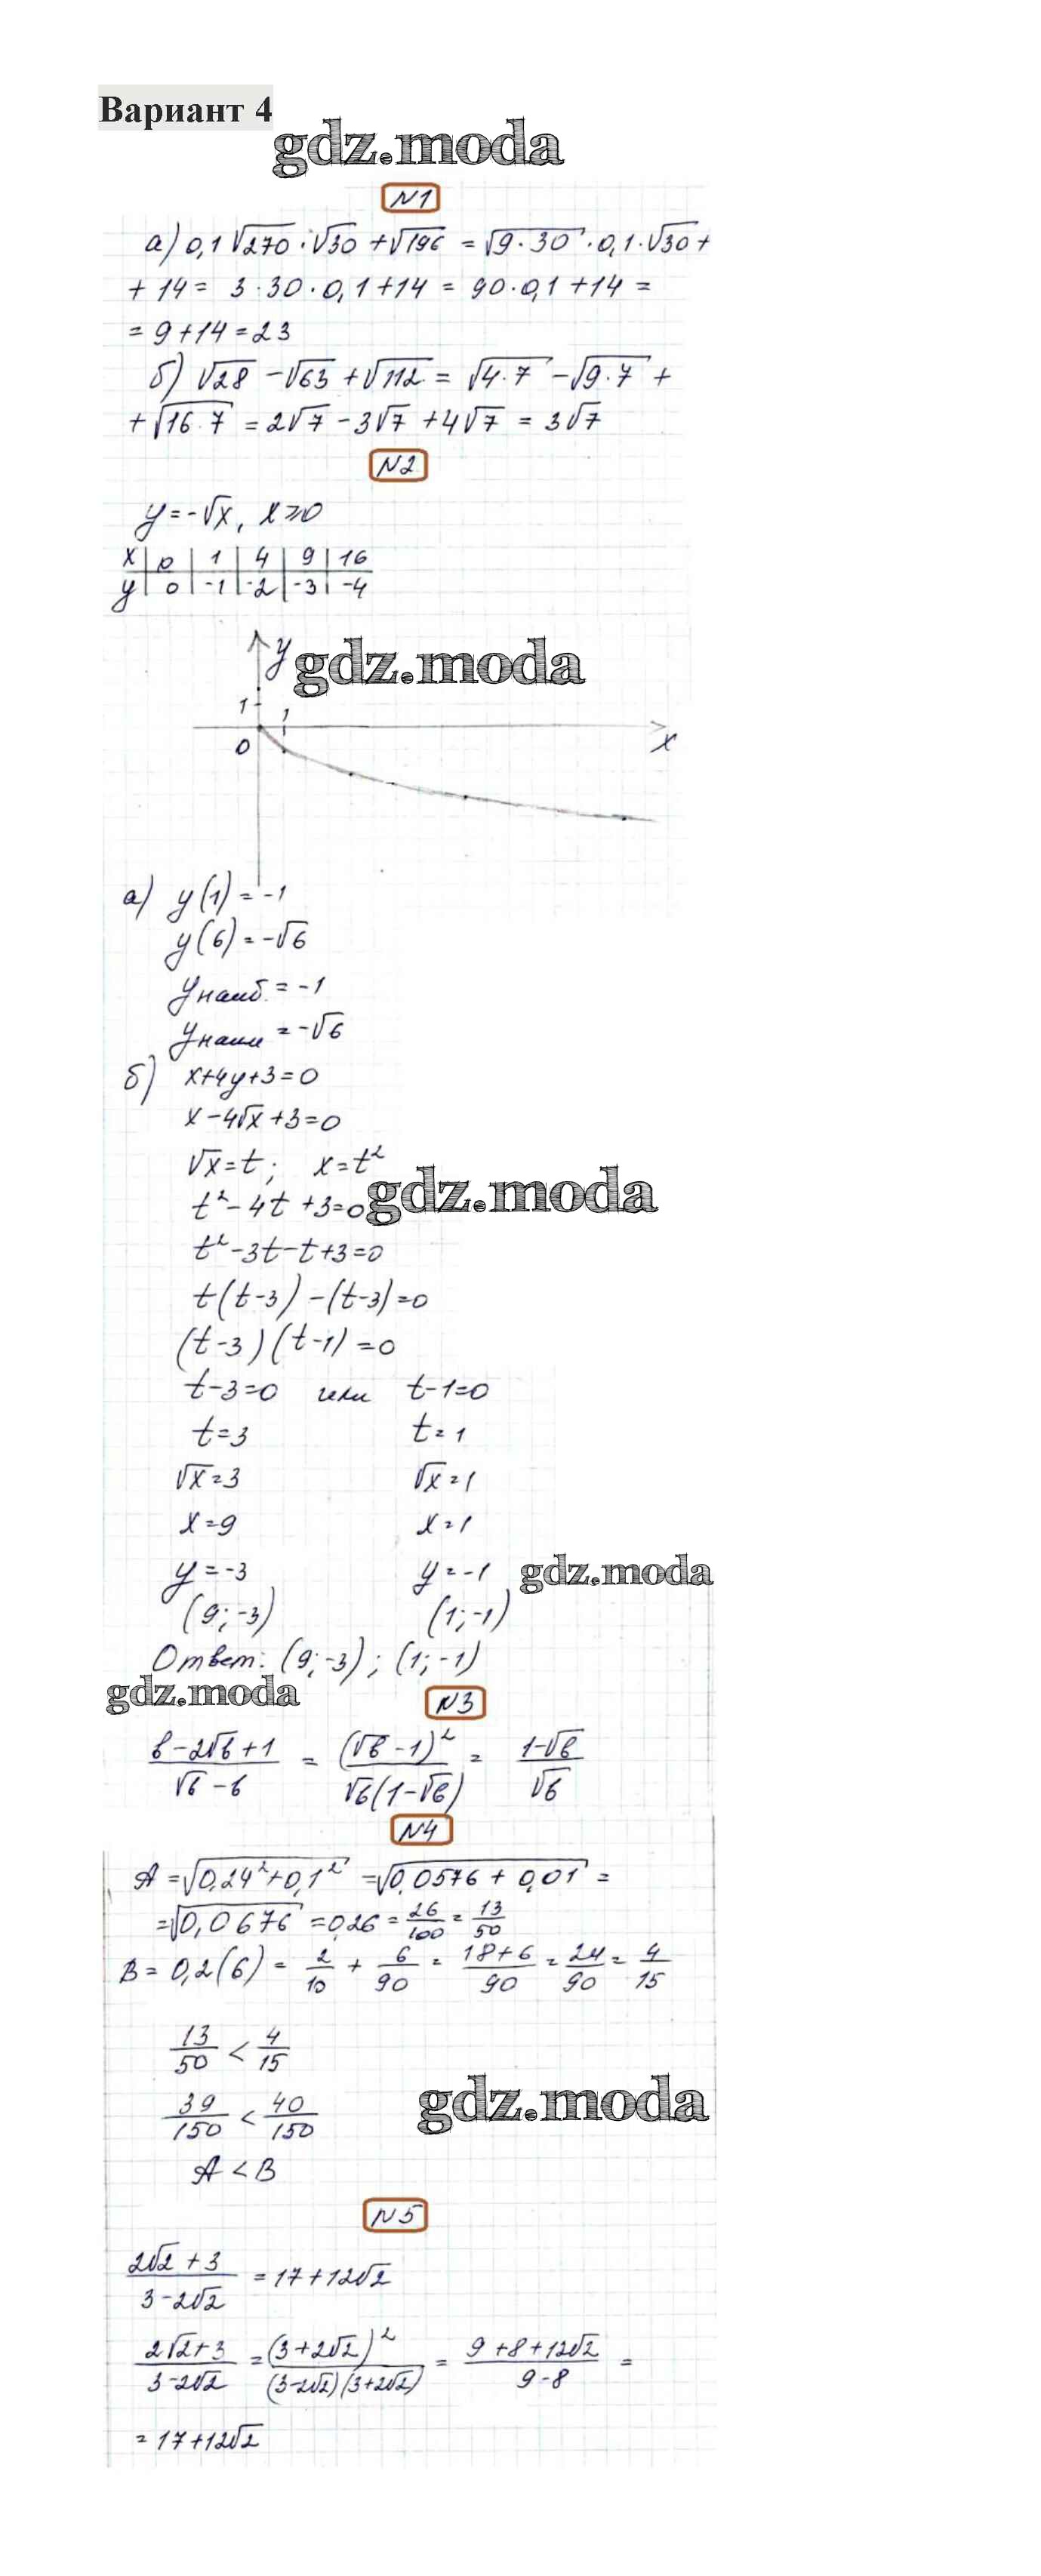 Вариант 4
gdz.moda
N1
а) 0,1√270·√30+√196 = √9·30·0,1·√30+
+14= 3·30·0,1+14 = 90·0,1+14=
=9+14=23
б) √28-√63+√112 = √4·7-√9·7+
+√16·7 = 2√7-3√7+4√7 = 3√7
N2
y=-√x, x≥0
x 0 1 4 9 16
y 0 -1 -2 -3 -4
y
gdz.moda
1
1
0
x
а) y(1)=-1
y(6)=-√6
yнаиб.=-1
yнаим=-√6
б) x+4y+3=0
x-4√x+3=0
√x=t; x=t²
t²-4t+3=0
gdz.moda
t²-3t-t+3=0
t(t-3)-(t-3)=0
(t-3)(t-1)=0
t-3=0 или t-1=0
t=3 t=1
√x=3 √x=1
x=9 x=1
y=-3 y=-1
gdz.moda
(9;-3) (1;-1)
Ответ: (9;-3); (1;-1)
gdz.moda
N3
b-2√b+1 / √b-b = (√b-1)² / √b(1-√b) = 1-√b / √b
N4
A=√0,24²+0,1² = √0,0576+0,01 =
=√0,0676=0,26=26/100=13/50
B=0,2(6)=2/10+6/90=18+6/90=24/90=4/15
13/50<4/15
39/150<40/150
gdz.moda
A<B
N5
2√2+3 / 3-2√2 = 17+12√2
2√2+3 / 3-2√2 = (3+2√2)² / (3-2√2)(3+2√2) = 9+8+12√2 / 9-8 =
=17+12√2